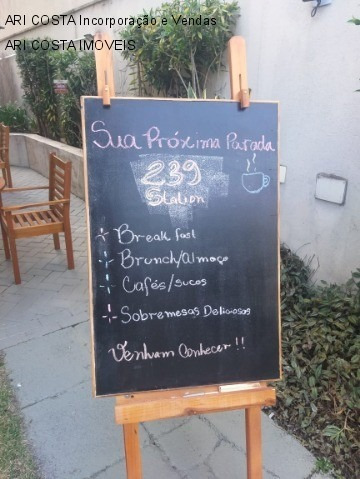 ARI COSTA Incorporação e Vendas
ARI COSTA IMÓVEIS
Sua Próxima Parada
239
Station
Break fast
Brunch/Almoço
Cafés/sucos
Sobremesas Deliciosas
Venham Conhecer!!